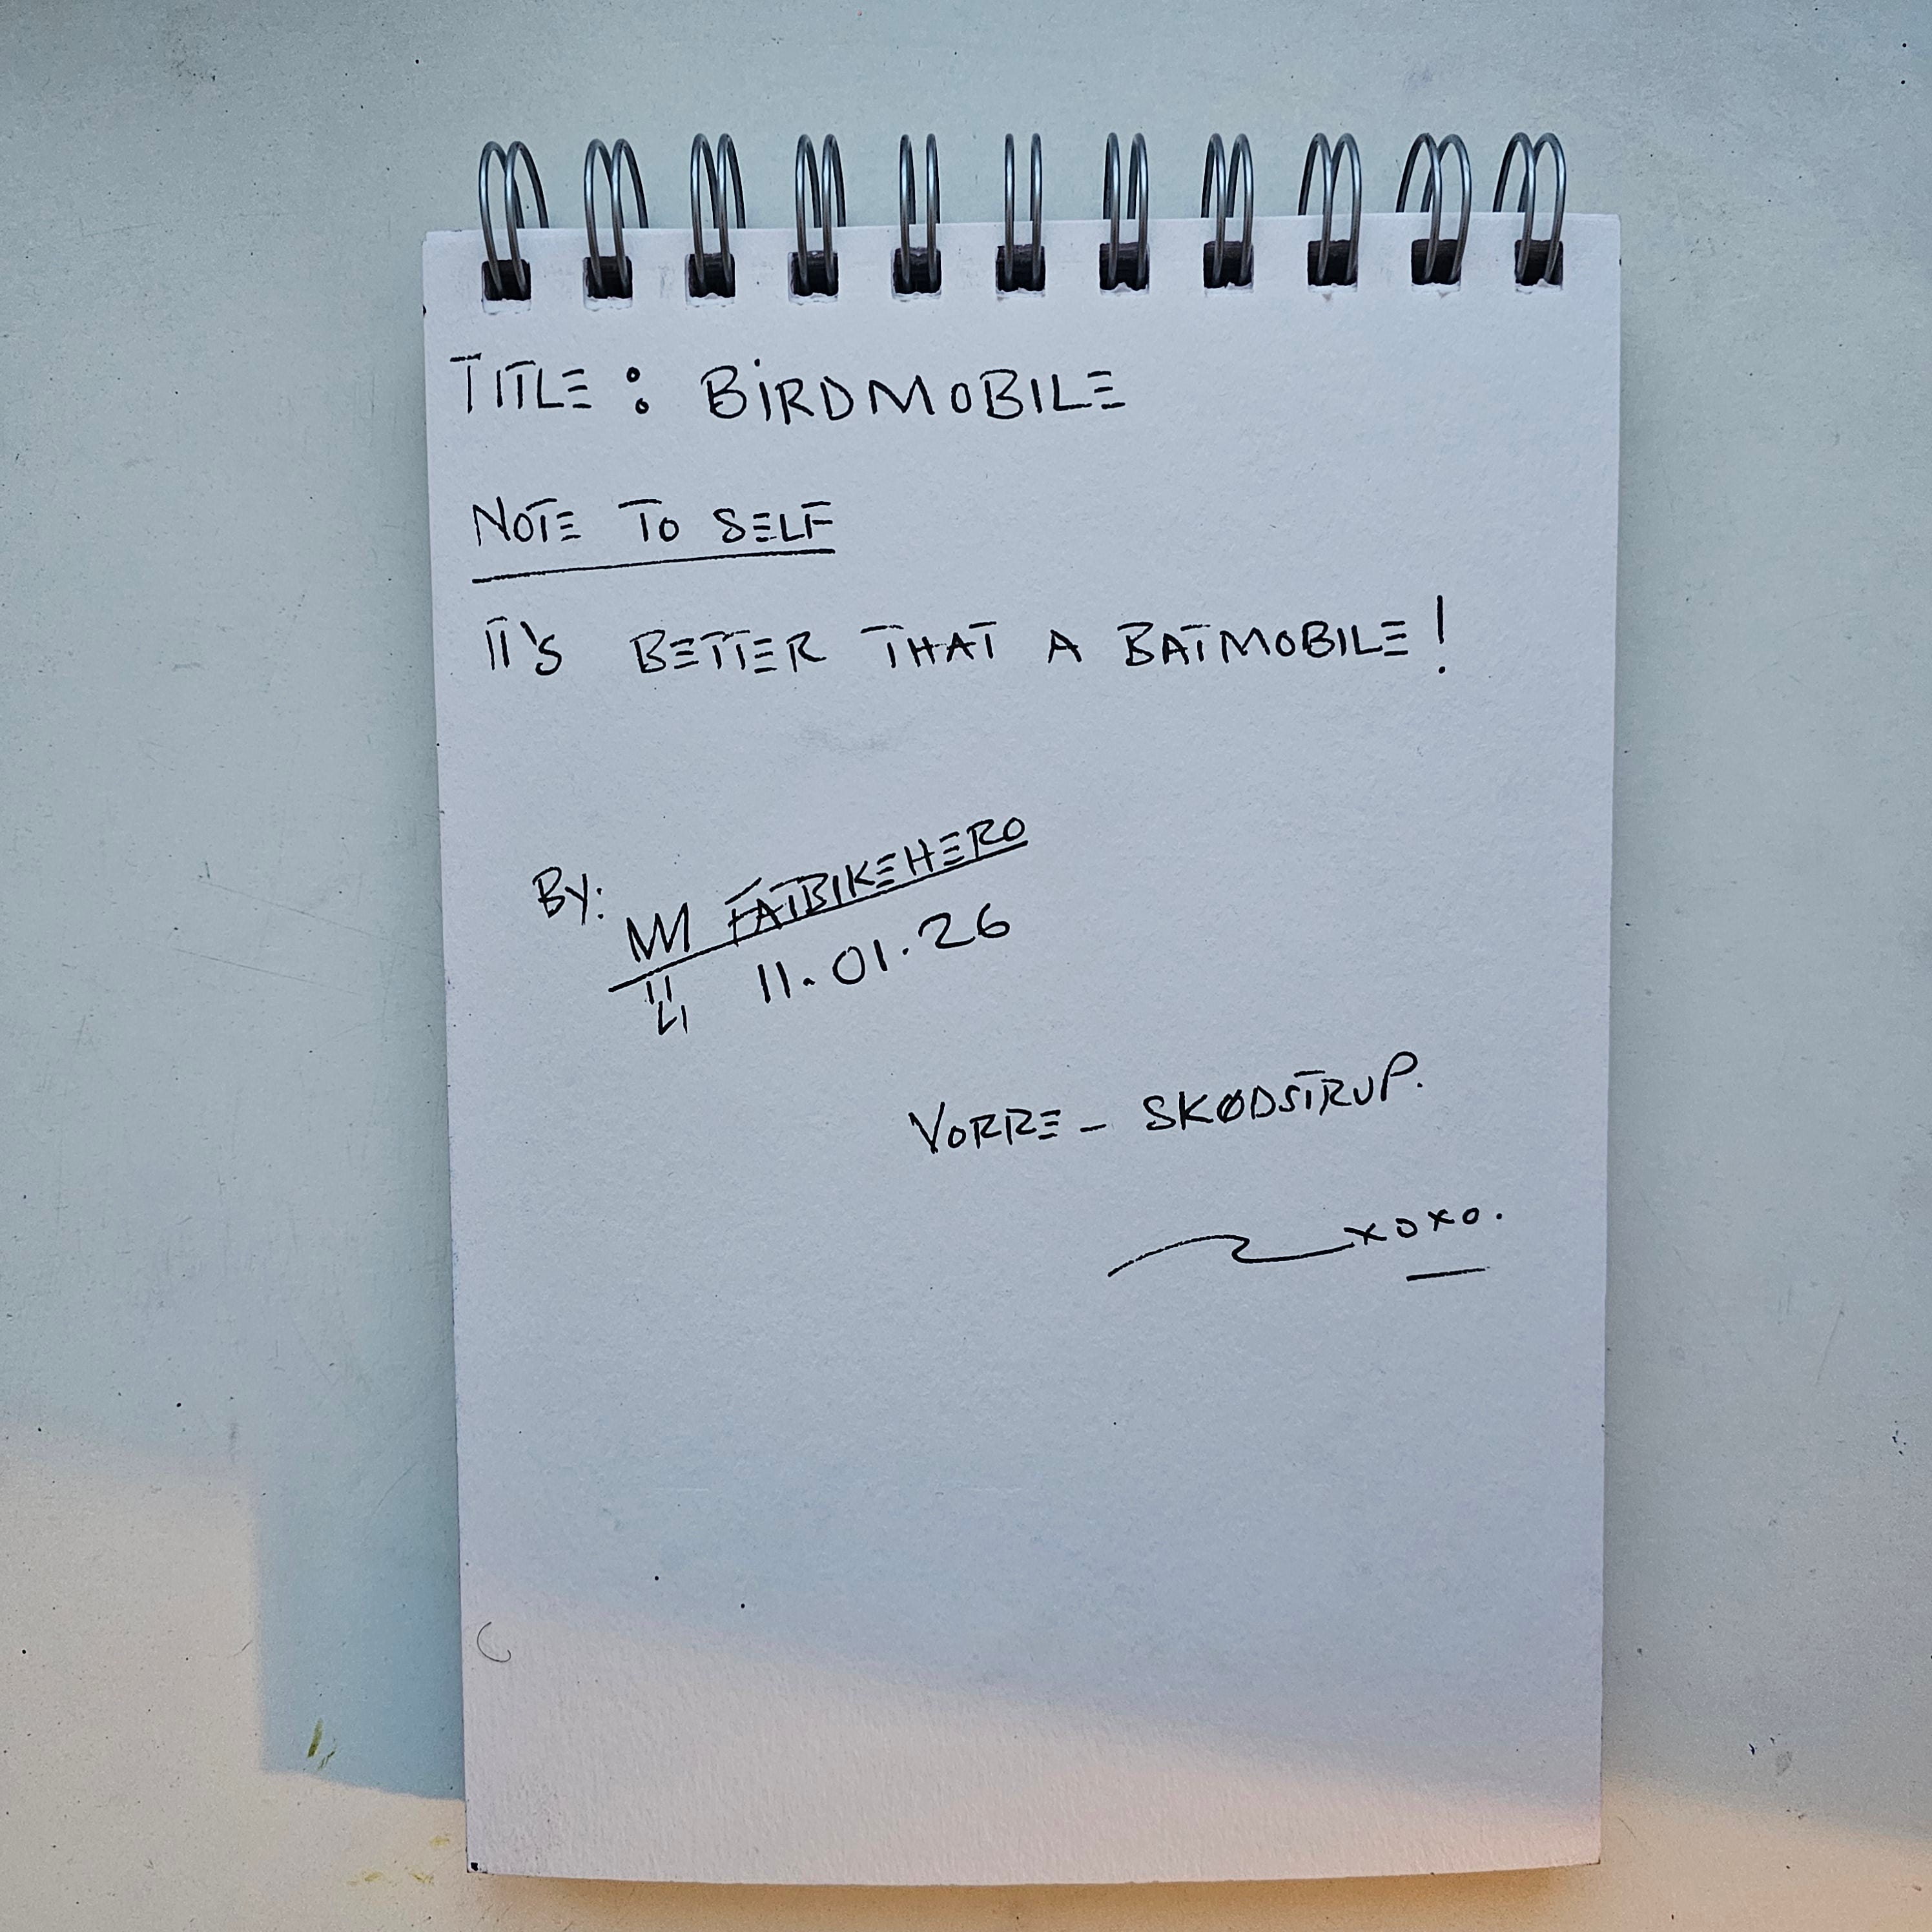 TITLE: BIRDMOBILE
NOTE TO SELF
IT'S BETTER THAT A BATMOBILE!
By: FATBIKEHERO
11.01.26
VORRE - SKØDSTRUP.
xoxo.